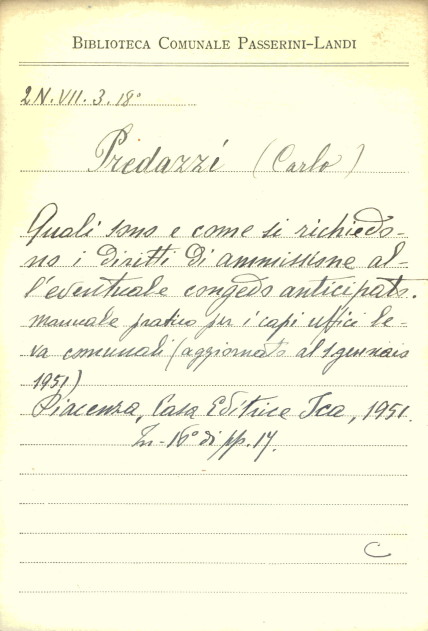 BIBLIOTECA COMUNALE PASSERINI-LANDI
2N.VII.3.18°
Predazzi (Carlo)
Quali sono e come si richiedo-
no i diritti di ammissione al-
l'eventuale congedo anticipato.
Manuale pratico per i capi uffici le-
va comunali (aggiornato al 1 gennaio
1951)
Piacenza, Casa Editrice Ica, 1951.
In-16° di pp. 17.
C